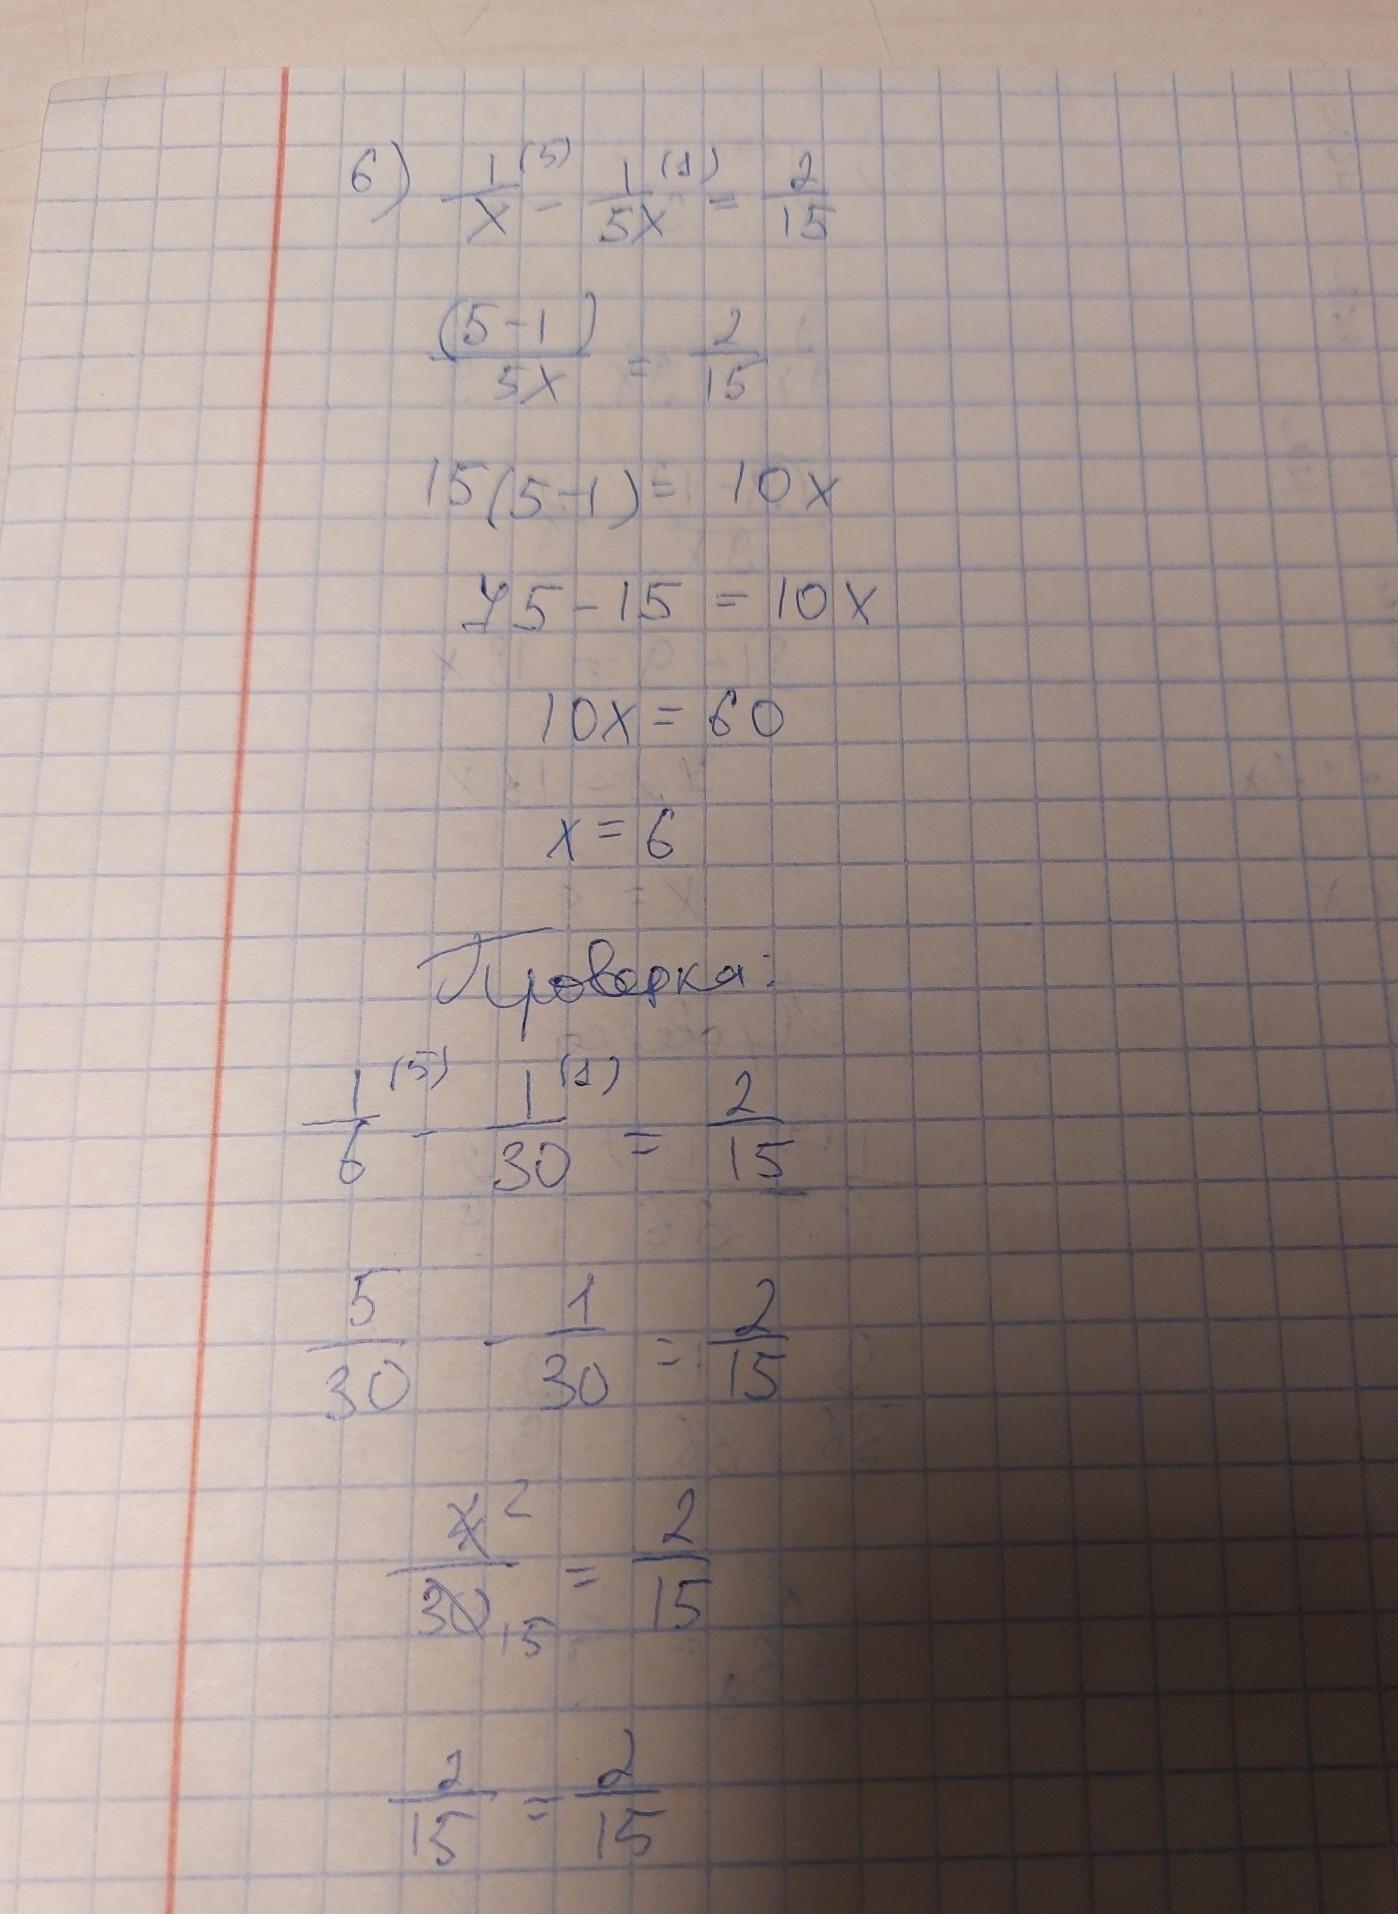 6) 1/x (5) - 1/5x (1) = 2/15
(5-1)/5x = 2/15
15(5-1) = 10x
75-15 = 10x
10x = 60
x = 6
Проверка:
1/6 (5) - 1/30 (1) = 2/15
5/30 - 1/30 = 2/15
4 2/30 15 = 2/15
2/15 = 2/15